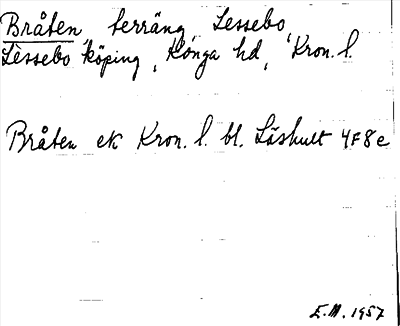 Bråten, terräng, Lessebo,
Lessebo köping, Konga hd, Kron. l.
Bråten ek Kron. l. bl. Låshult 4F8e
E.M. 1957